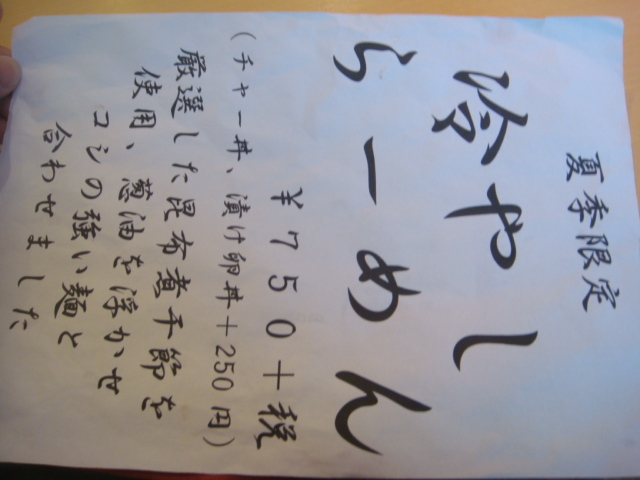 夏季限定
冷やし
らーめん
¥750+税
(チャー丼、漬け卵丼+250円)
厳選した昆布煮干節を
使用、葱油を浮かせ
コシの強い麺と
合わせました